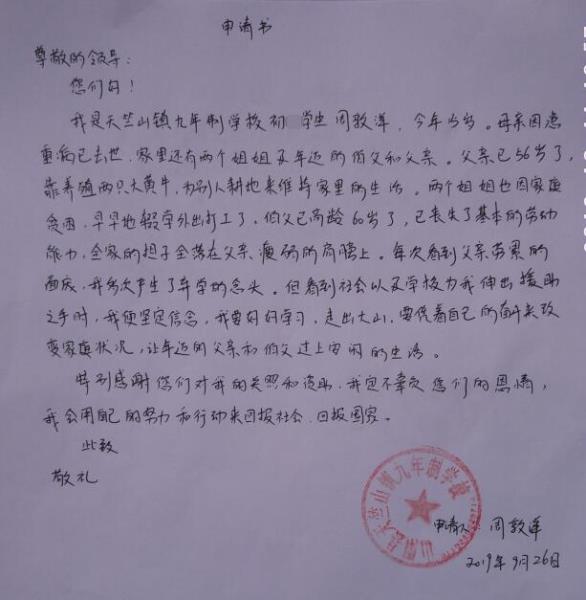 申请书
尊敬的领导:
您们好!
我是天竺山镇九年制学校初 学生周敦洋,今年15岁。母亲因患
重病已去世,家里还有两个姐姐及年迈的伯父和父亲。父亲已56岁了,
靠养殖两只大黄牛,为别人耕地来维持家里的生活。两个姐姐也因家庭
贫困,早早地辍学外出打工了,伯父已高龄60岁了,已丧失了基本的劳动
能力,全家的担子全落在父亲瘦弱的肩膀上。每次看到父亲劳累的
面庞,我多次产生了弃学的念头。但看到社会以及学校为我伸出援助
之手时,我便坚定信念,我要好好学习,走出大山,要凭着自己的奋斗来改
变家庭状况,让年迈的父亲和伯父过上安闲的生活。
特别感谢您们对我的关照和资助,我定不辜负您们的恩情,
我会用自己的努力和行动来回报社会、回报国家。
此致
敬礼
山阳县天竺山镇九年制学校
申请人:周敦洋
2019年9月26日